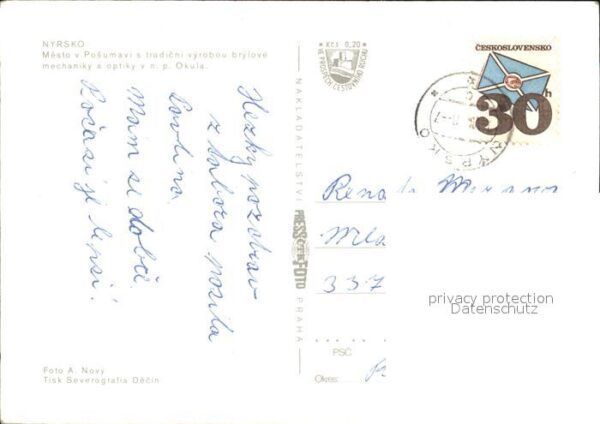 NÝRSKO
Město v Pošumaví s tradiční výrobou brýlové
mechaniky a optiky v n. p. Okula.
Hezký pozdrav
z tábora posílá
Mám se dobře.
Počasí je lepší!
Foto A. Nový
Tisk Severografia Děčín
NAKLADATELSTVÍ PRESSFOTO PRAHA
Kčs 0,20
VE PROSPĚCH CESTOVNÍHO RUCHU
ČESKOSLOVENSKO
30h
NÝRSKO
Mla
337
privacy protection
Datenschutz
PSČ
Okres: